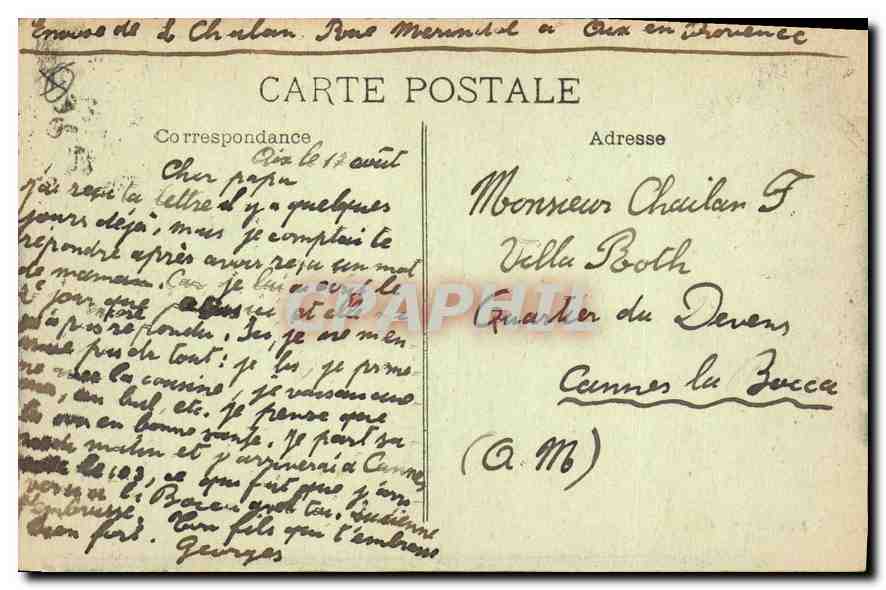 Envoi de L Chalan Rue Merindol a Aix en Provence
CARTE POSTALE
Correspondance
Adresse
Aix le 12 août
Cher papa
J'ai reçu ta lettre il y a quelques
jours déjà, mais je comptai te
répondre après avoir reçu un mot
de maman. Car je lui ai écrit le
2e jour que
pas répondu. Ici, je ne m'en-
nuie pas du tout: je lis, je prome-
ne avec la cousine, je vais au
au bal, etc. je pense que
en bonne santé. Je part sa-
medi matin et j'arriverai à Cannes
le 103, ce qui fait que j'arri-
la Bocca Lucienne
t'embrasse
bien fort. Ton fils qui t'embrasse
Georges
Monsieur Chailan F.
Villa Roth
Quartier du Devens
Cannes la Bocca
(A. M)
CPAPHIL